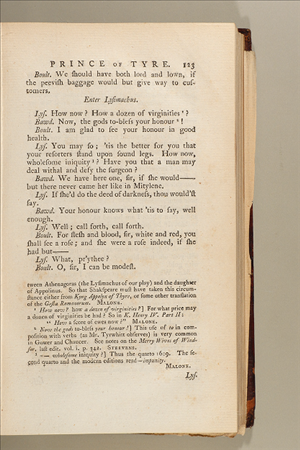 PRINCE OF TYRE. 125
Boult. We ſhould have both lord and lown, if
the peeviſh baggage would but give way to cuſ-
tomers.
Enter Lyſimachus.
Lyſ. How now? How a dozen of virginities?
Bawd. Now, the gods to-bleſs your honour!
Boult. I am glad to ſee your honour in good
health.
Lyſ. You may ſo; 'tis the better for you that
your reſorters ſtand upon ſound legs. How now,
wholeſome iniquity? Have you that a man may
deal withal and defy the ſurgeon?
Bawd. We have here one, ſir, if ſhe would——
but there never came her like in Mitylene.
Lyſ. If ſhe'd do the deed of darkneſs, thou would'ſt
ſay.
Bawd. Your honour knows what 'tis to ſay, well
enough.
Lyſ. Well; call forth, call forth.
Boult. For fleſh and blood, ſir, white and red, you
ſhall ſee a roſe; and ſhe were a roſe indeed, if ſhe
had but——
Lyſ. What, pr'ythee?
Boult. O, ſir, I can be modeſt.
tween Athenagoras (the Lyſimachus of our play) and the daughter
of Appolinus. So that Shakſpeare muſt have taken this circum-
ſtance either from King Appolyn of Thyre, or ſome other tranſlation
of the Geſta Romanorum. MALONE.
How now? how a dozen of virginities?] For what price may
a dozen of virginities be had? So in K. Henry IV. Part II:
"How a ſcore of ewes now?" MALONE.
Now the gods to-bleſs your honour!] This uſe of to in com-
poſition with verbs (as Mr. Tyrwhitt obſerves) is very common
in Gower and Chaucer. See notes on the Merry Wives of Wind-
ſor, laſt edit. vol. i. p. STEEVENS.
— wholeſome iniquity?] Thus the quarto 1609. The ſe-
cond quarto and the modern editions read—impunity.
MALONE.
Lyſ.